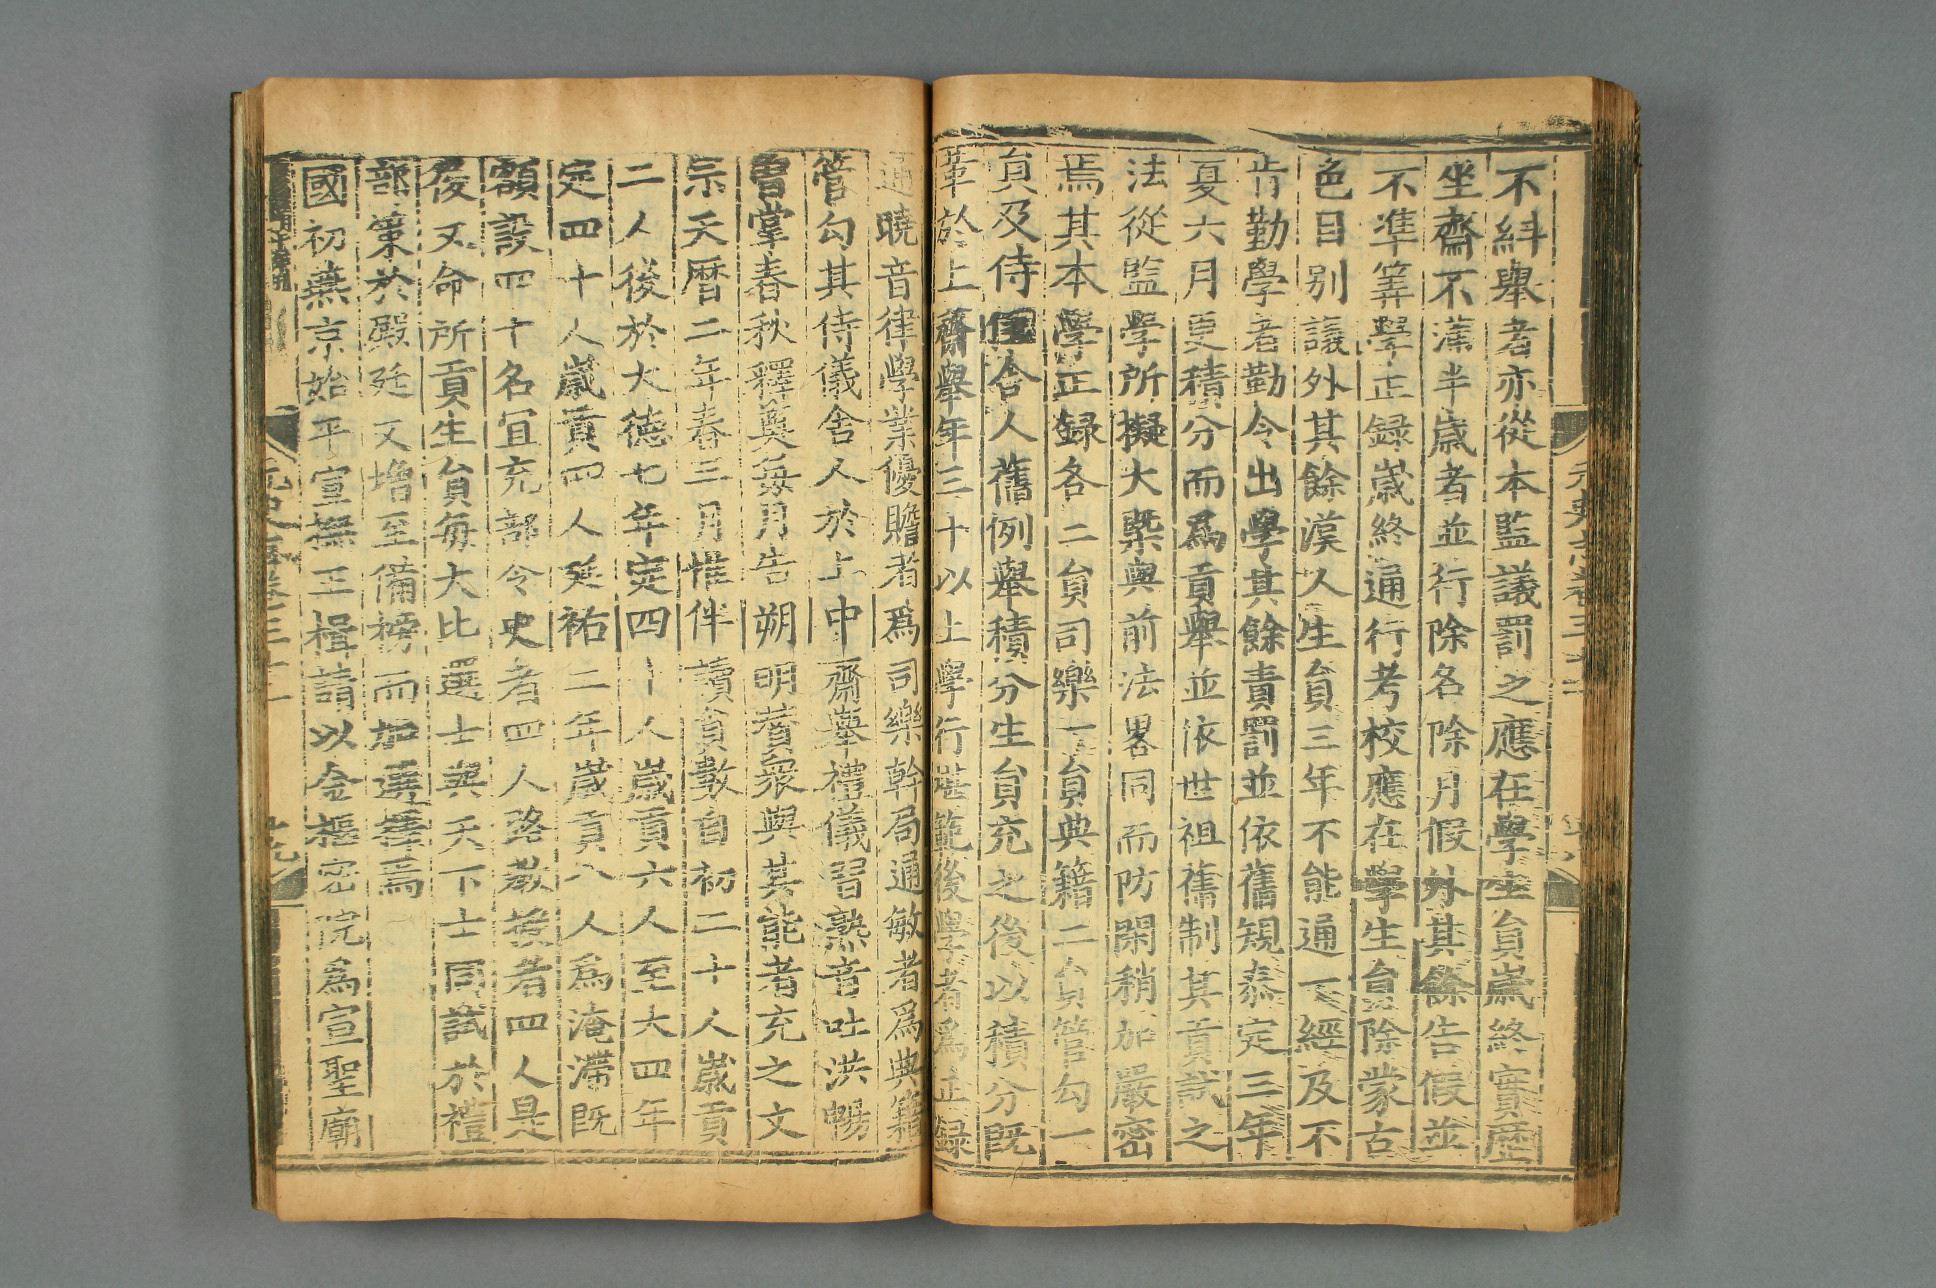 不糾舉者亦從本監議罰之應在學生員歲終實歷
坐齋不滿半歲者並行除名除月假外其餘告假並
不準筭學正録歲終通行考校應在學生員除蒙古
色目别議外其餘漢人生員三年不能通一經及不
肯勤學者勤令出學其餘責罰並依舊規泰定三年
夏六月更積分而爲貢舉並依世祖舊制其貢試之
法從監學所擬大槩與前法畧同而防閑稍加嚴密
焉其本學正録各二員司樂一員典籍二員管勾一
員及侍儀舍人舊例舉積分生員充之後以積分既
革於上齋舉年三十以上學行堪範後學者爲正録
通曉音律學業優贍者爲司樂幹局通敏者爲典籍
管勾其侍儀舍人於上中齋舉禮儀習熟音吐洪暢
曾掌春秋釋奠每月告朔明賛衆與其能者充之文
宗天曆二年春三月惟伴讀員數自初二十人歲貢
二人後於大德七年定四十人歲貢六人至大四年
定四十人歲貢四人延祐二年歲貢八人爲淹滯既
額設四十名宜充部令史者四人路教授者四人是
後又命所貢生員每大比選士與天下士同試於禮
部策於殿廷又增至備榜而加選擇焉
國初燕京始平宣撫王楫請以金樞密院爲宣聖廟